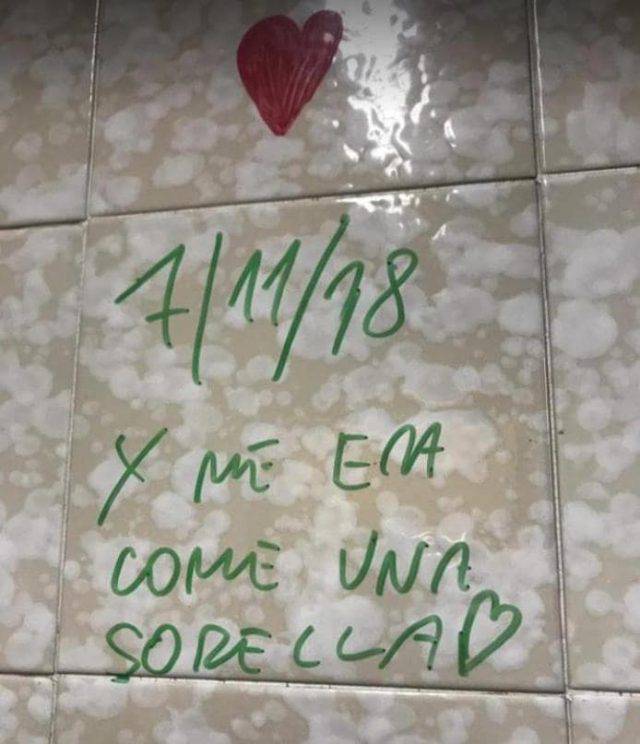 7/11/18
X ME ERA
COME UNA
SORELLA♡